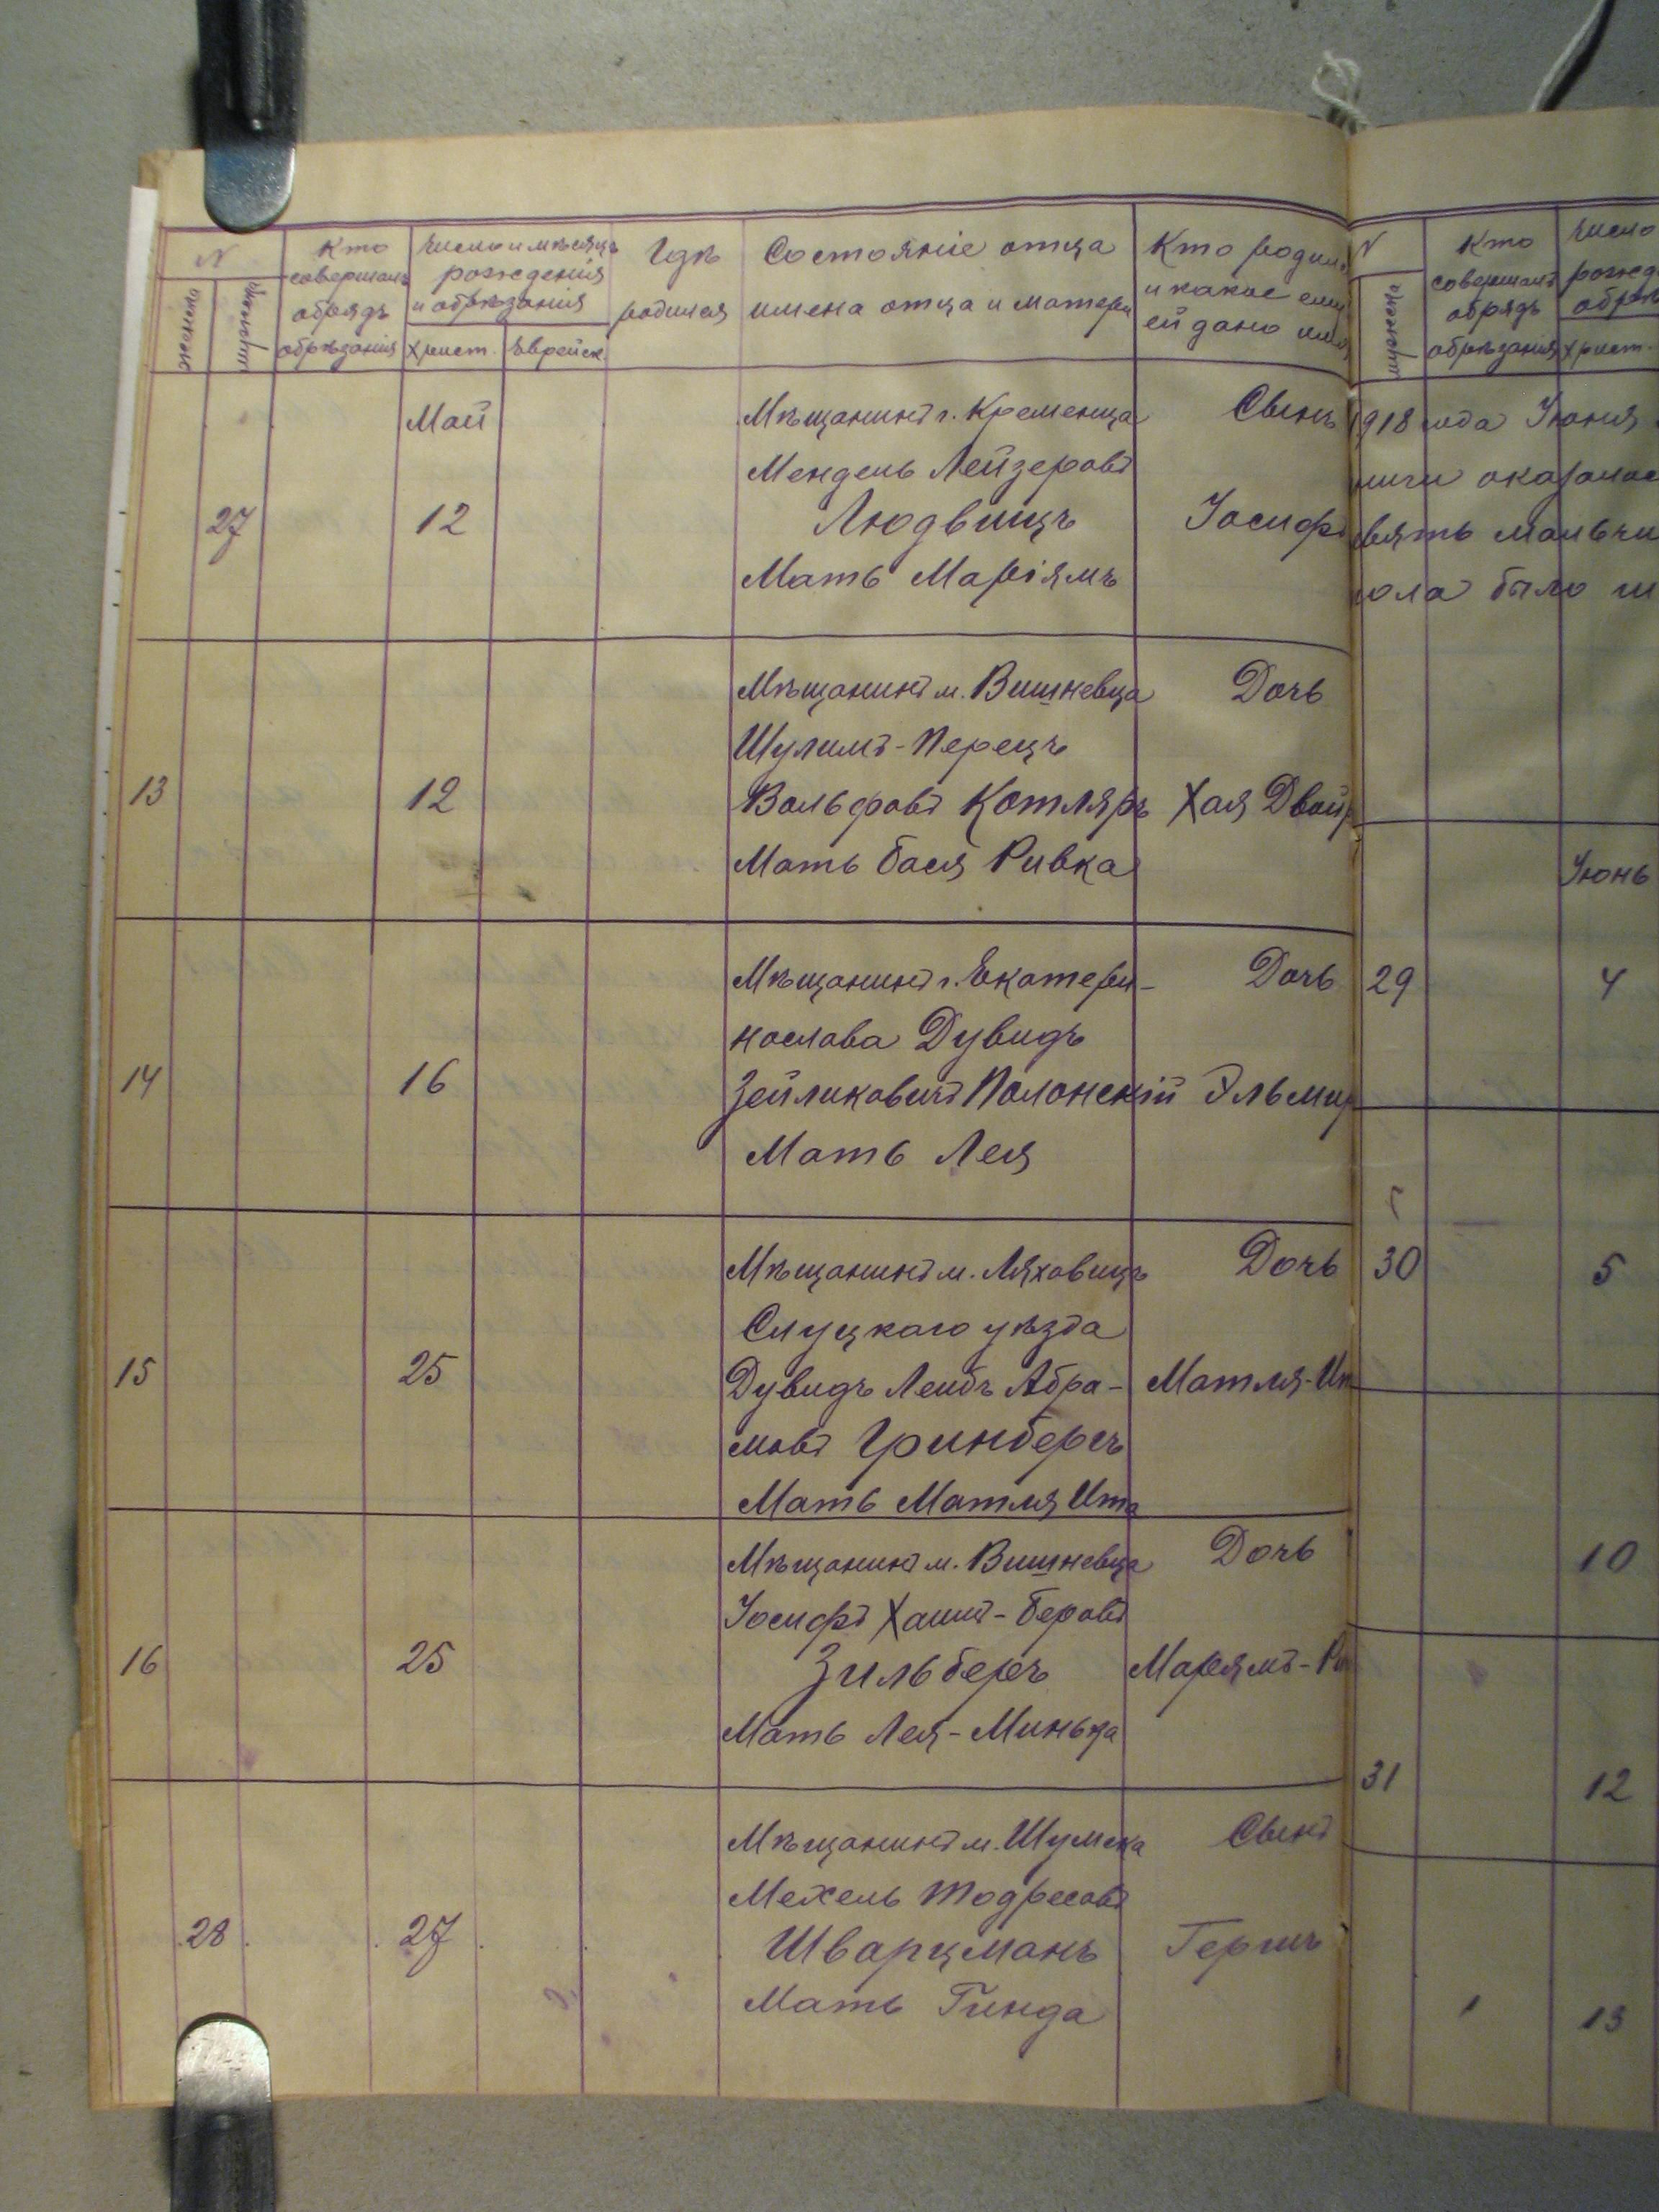 N
женска
мужеска
Кто
совершалъ
обрядъ
обрѣзанія
Число и мѣсяцъ
рожденія
и обрѣзанія
Христ.
Еврейск.
Гдѣ
родился
Состояніе отца
имена отца и матери
Кто родил
и какое ему
ей дано имя
27
Май
12
Мѣщанинъ г. Кременца
Мендель Лейзеровъ
Людвицъ
Мать Маріямъ
Сынъ
Іосифъ
13
12
Мѣщанинъ м. Вишневца
Шулимъ-Перецъ
Вольфовъ Котляръ
Мать Бася Ривка
Дочь
Хая Двойр
14
16
Мѣщанинъ г. Екатери-
нослава Дувидъ
Зейликовичъ Полонскій
Мать Лея
Дочь
Эльмир
15
25
Мѣщанинъ м. Ляховицъ
Слуцкаго уѣзда
Дувидъ Лейбъ Абра-
мовъ Гринбергъ
Мать Матля Ита
Дочь
Матля-Ит
16
25
Мѣщанинъ м. Вишневца
Іосифъ Хаимъ-Беровъ
Зильберъ
Мать Лея-Минька
Дочь
Марямъ-Ри
28
27
Мѣщанинъ м. Шумска
Мехель Тодресовъ
Шварцманъ
Мать Гинда
Сынъ
Гершъ
N
Кто
совершалъ
обрядъ
обрѣзанія
Число
рожд
обрѣз
Христ.
1918 года Іюня
ниги оказалос
вять мальчи
пола было ш
Іюнь
29
4
30
5
10
31
12
13